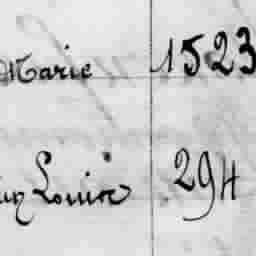 Marie 1523
Louise 294